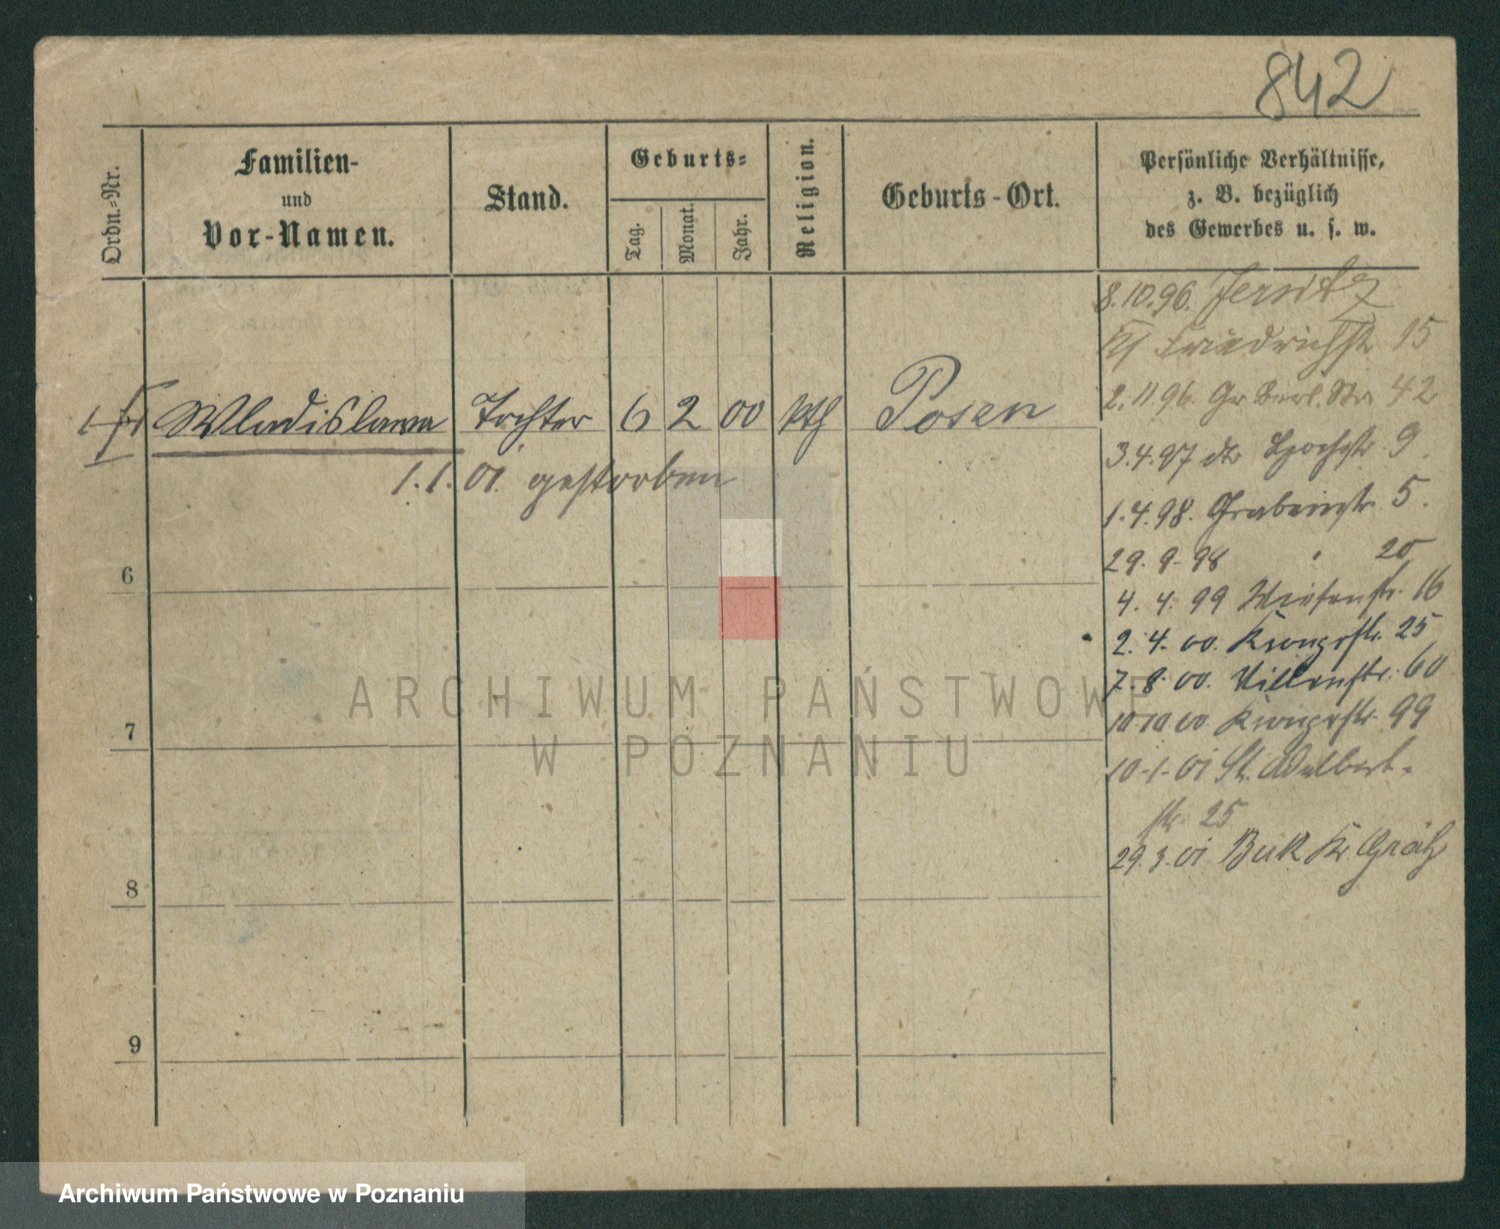 842
Ordn.-Nr.
Familien-
und
Vor-Namen.
Stand.
Geburts-
Tag.
Monat.
Jahr.
Religion.
Geburts-Ort.
Persönliche Verhältnisse,
z. B. bezüglich
des Gewerbes u. s. w.
8.10.96. Jersitz
Friedrichstr 15
Wladislawa Tochter 6 2 00 kth Posen
1.1.01. gestorben
2.11.96. Gr Berl. Str 42
3.4.97 9.
1.4.98. Grabenstr 5.
29.9.98 " 20
4. 4. 99 Wiesenstr. 16
2. 4. 00. Kronprstr. 25
7. 8. 00. 60
10.10.00. Kronprstr. 99
10.1.01 St. Adalbert-
str. 25
29.3.01 Buk Kr. Grätz
6
7
8
9
ARCHIWUM PAŃSTWOWE
W POZNANIU
Archiwum Państwowe w Poznaniu